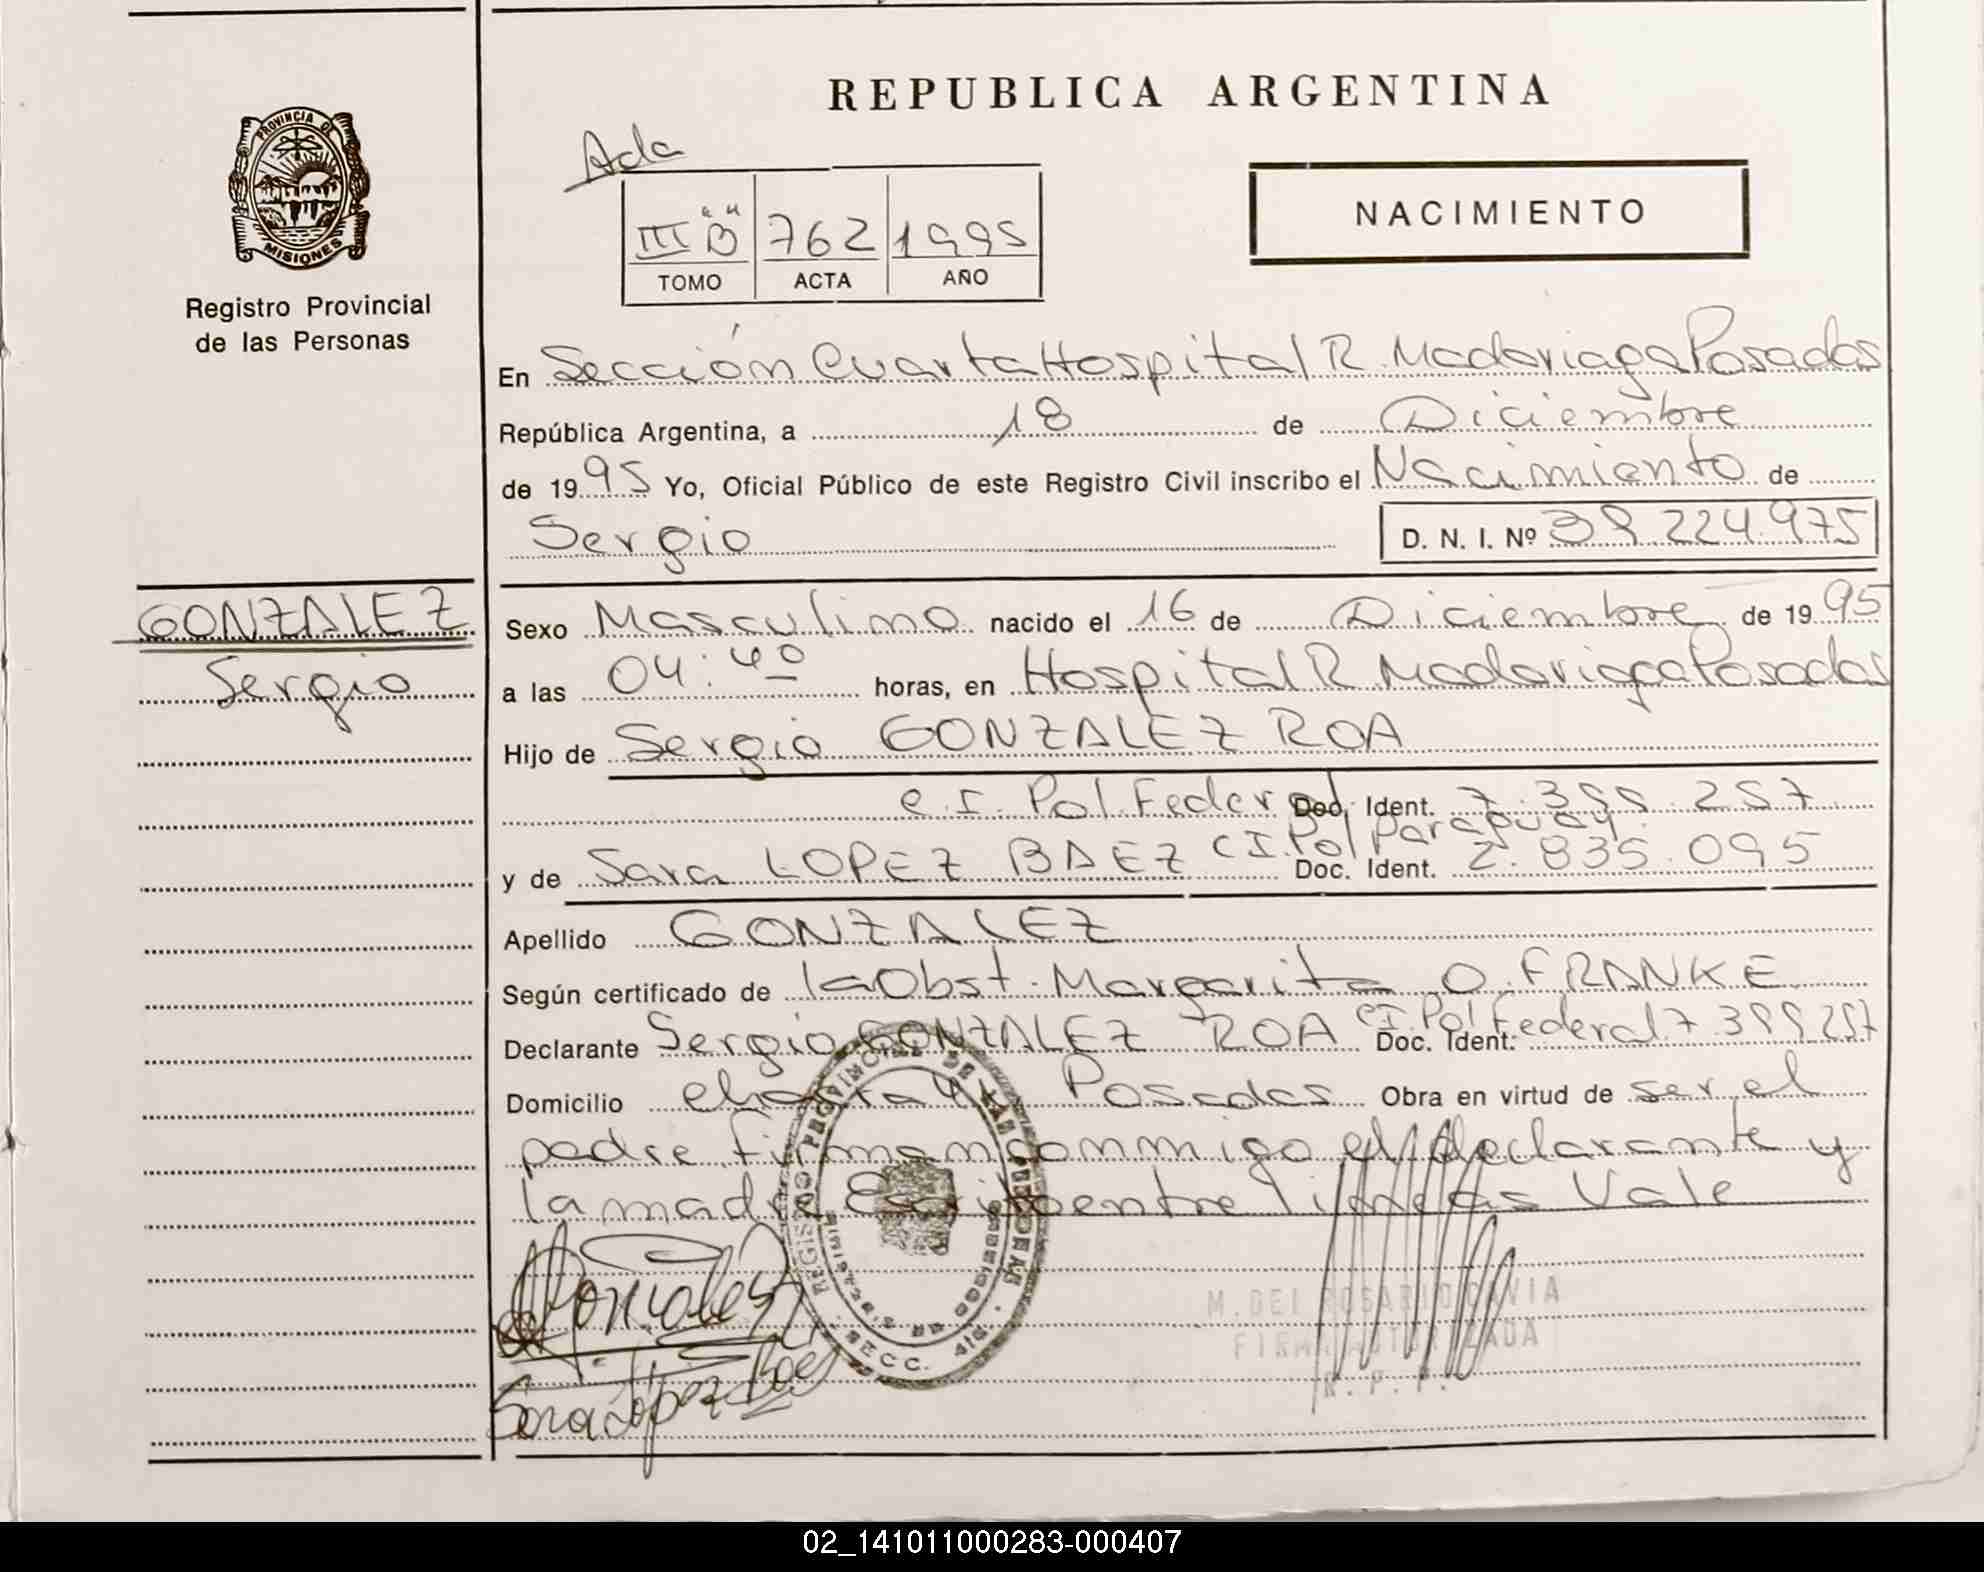 PROVINCIA DE
MISIONES
Registro Provincial
de las Personas
GONZALEZ
Sergio
REPUBLICA ARGENTINA
NACIMIENTO
III "B" 762 1995
TOMO ACTA AÑO
En Sección Cuarta Hospital R. Madariaga Posadas
República Argentina, a 18 de Diciembre
de 1995 Yo, Oficial Público de este Registro Civil inscribo el Nacimiento de
Sergio D. N. I. Nº 39.224.975
Sexo Masculino nacido el 16 de Diciembre de 1995
a las 04:40 horas, en Hospital R. Madariaga Posadas
Hijo de Sergio GONZALEZ ROA
C.I. Pol. Federal Doc. Ident. 7.399.257
y de Sara LOPEZ BAEZ C I. Pol Paraguay Doc. Ident. 2.835.095
Apellido GONZALEZ
Según certificado de la Obst. Margarita O. FRANKE
Declarante Sergio GONZALEZ ROA CI. Pol Federal Doc. Ident. 7.399257
Domicilio chacra Posadas Obra en virtud de ser el
padre firman conmigo el declarante y
la madre Escrito entre lineas Vale
Gonzalez
Sara López Baez
REGISTRO PROVINCIAL DE LAS PERSONAS
SECC. 4ta.
M. DEL ROSARIO CAVIA
FIRMA AUTORIZADA
R. P. P.
02_141011000283-000407